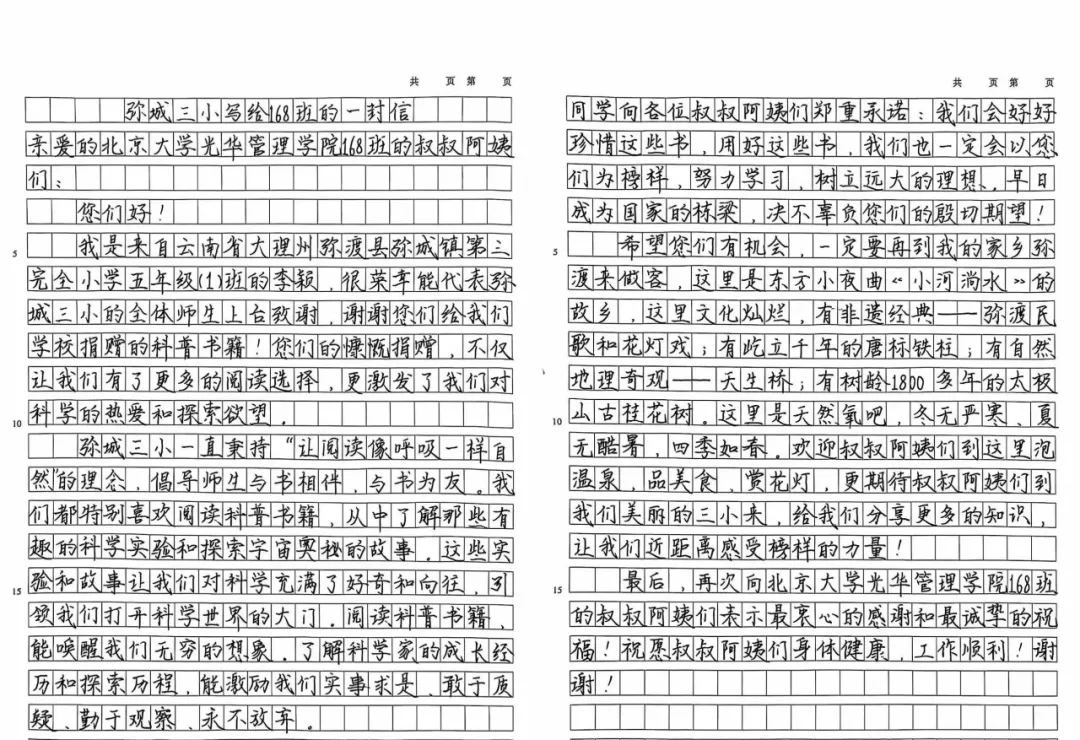 共 页 第 页
弥城三小写给168班的一封信
亲爱的北京大学光华管理学院168班的叔叔阿姨
们：
您们好！
5
我是来自云南省大理州弥渡县弥城镇第三
完全小学五年级(1)班的李颖，很荣幸能代表弥
城三小的全体师生上台致谢，谢谢您们给我们
学校捐赠的科普书籍！您们的慷慨捐赠，不仅
让我们有了更多的阅读选择，更激发了我们对
10
科学的热爱和探索欲望。
弥城三小一直秉持“让阅读像呼吸一样自
然”的理念，倡导师生与书相伴，与书为友。我
们都特别喜欢阅读科普书籍，从中了解那些有
趣的科学实验和探索宇宙奥秘的故事。这些实
15
验和故事让我们对科学充满了好奇和向往，引
领我们打开科学世界的大门。阅读科普书籍，
能唤醒我们无穷的想象。了解科学家的成长经
历和探索历程，能激励我们实事求是、敢于质
疑、勤于观察、永不放弃。
共 页 第 页
同学向各位叔叔阿姨们郑重承诺：我们会好好
珍惜这些书，用好这些书，我们也一定会以您
们为榜样，努力学习，树立远大的理想，早日
成为国家的栋梁，决不辜负您们的殷切期望！
5
希望您们有机会，一定要再到我的家乡弥
渡来做客，这里是东方小夜曲《小河淌水》的
故乡，这里文化灿烂，有非遗经典——弥渡民
歌和花灯戏；有屹立千年的唐标铁柱；有自然
地理奇观——天生桥；有树龄1800多年的太极
10
山古桂花树。这里是天然氧吧，冬无严寒、夏
无酷暑，四季如春。欢迎叔叔阿姨们到这里泡
温泉，品美食，赏花灯，更期待叔叔阿姨们到
我们美丽的三小来，给我们分享更多的知识，
让我们近距离感受榜样的力量！
15
最后，再次向北京大学光华管理学院168班
的叔叔阿姨们表示最衷心的感谢和最诚挚的祝
福！祝愿叔叔阿姨们身体健康，工作顺利！谢
谢！